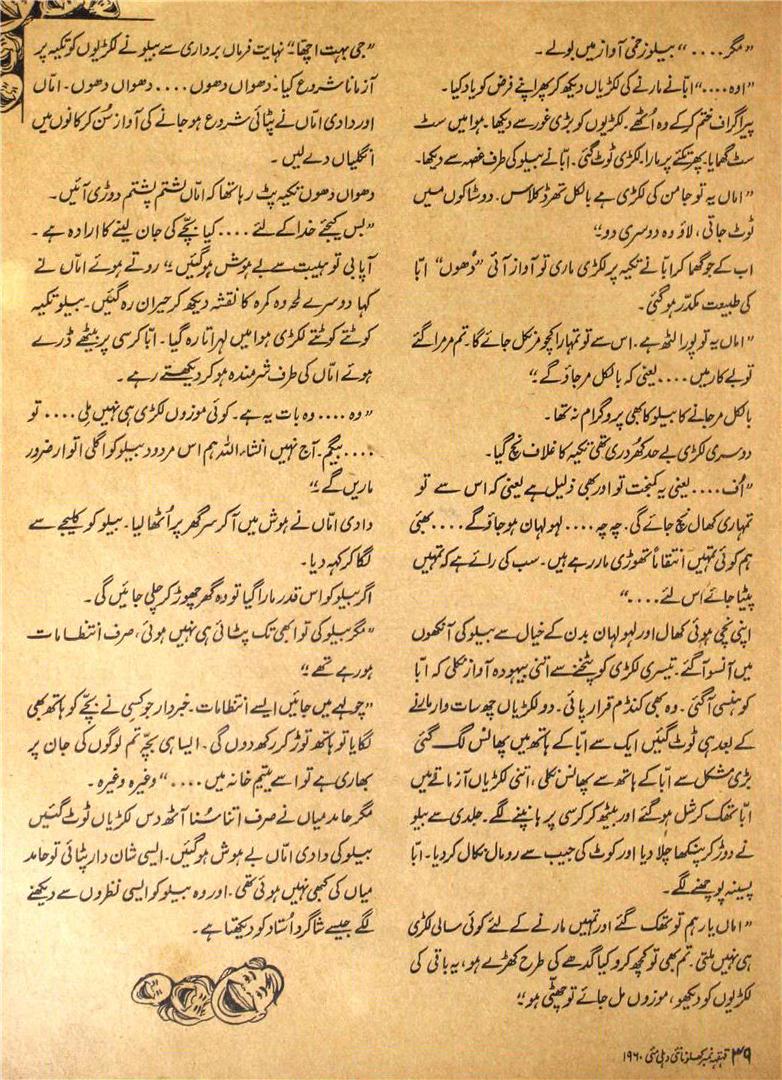 ”مگر.... “ ببلو زخمی آواز میں بولے۔
”اوہ....“ ابّا نے مارنے کی لکڑیاں دیکھ کر پھر اپنے فرض کو یاد کیا۔
پیراگراف ختم کر کے وہ اُٹھے۔ لکڑیوں کو بڑی غور سے دیکھا۔ ہوا میں سٹ
سٹ گھمایا۔ پھر تکئے پر مارا۔ لکڑی ٹوٹ گئی۔ ابّا نے ببلو کی طرف غصہ سے دیکھا۔
”اماں یہ تو جامن کی لکڑی ہے بالکل تھرڈ کلاس۔ دو شاکوں میں
ٹوٹ جاتی، لاؤ وہ دوسری دو۔“
اب کے جو گھما کر ابّا نے تکیہ پر لکڑی ماری تو آواز آئی ”دُھوں“ ابّا
کی طبیعت مکدّر ہو گئی۔
”اماں یہ تو پورا لٹھ ہے۔ اس سے تو تمہارا کچومر نکل جائے گا۔ تم مر مرا گئے
تو بے کار میں.... یعنی کہ بالکل مر جاؤ گے۔“
بالکل مر جانے کا ببلو کا بھی پروگرام نہ تھا۔
دوسری لکڑی بے حد کھُردری تھی تکیہ کا غلاف نچ گیا۔
”اُف.... یعنی یہ کمبخت تو اور بھی ذلیل ہے یعنی کہ اس سے تو
تمہاری کھال نچ جائے گی۔ چہ چہ.... لہولہان ہو جاؤ گے.... بھئی
ہم کوئی تمہیں انتقاماً تھوڑی مار رہے ہیں۔ سب کی رائے ہے کہ تمہیں
پیٹا جائے اس لئے....“
اپنی نچی ہوئی کھال اور لہولہان بدن کے خیال سے ببلو کی آنکھوں
میں آنسو آ گئے۔ تیسری لکڑی کو پٹخنے سے اتنی بیہودہ آواز نکلی کہ ابّا
کو ہنسی آ گئی۔ وہ بھی کنڈم قرار پائی۔ دو لکڑیاں چھ سات وار مارنے
کے بعد ہی ٹوٹ گئیں ایک سے ابّا کے ہاتھ میں پھانس لگ گئی
بڑی مشکل سے ابّا کے ہاتھ سے پھانس نکلی، اتنی لکڑیاں آزماتے میں
ابّا تھک کر شل ہو گئے اور بیٹھ کر کرسی پر ہانپنے لگے۔ جلدی سے ببلو
نے دوڑ کر پنکھا چلا دیا اور کوٹ کی جیب سے رومال نکال کر دیا۔ ابّا
پسینہ پوچھنے لگے۔
”اماں یار ہم تو تھک گئے اور تمہیں مارنے کے لئے کوئی سالی لکڑی
ہی نہیں ملتی۔ تم بھی تو کچھ کرو کیا گدھے کی طرح کھڑے ہو، یہ باقی کی
لکڑیوں کو دیکھو، موزوں مل جائے تو چھٹّی ہو۔“
”جی بہت اچھّا۔“ نہایت فرماں برداری سے ببلو نے لکڑیوں کو تکیہ پر
آزمانا شروع کیا۔ دھواں دھوں.... دھواں دھوں۔ امّاں
اور دادی امّاں نے پٹائی شروع ہو جانے کی آواز سُن کر کانوں میں
انگلیاں دے لیں۔
دھواں دھوں تکیہ پٹ رہا تھا کہ امّاں لشتم پشتم دوڑی آئیں۔
”بس کیجئے خدا کے لئے.... کیا بچّے کی جان لینے کا ارادہ ہے۔
آپا بی تو ہیبت سے بے ہوش ہو گئیں۔“ روتے ہوئے امّاں نے
کہا دوسرے لمحہ وہ کمرہ کا نقشہ دیکھ کر حیران رہ گئیں۔ ببلو تکیہ
کوٹتے کوٹتے لکڑی ہوا میں لہراتا رہ گیا۔ ابّا کرسی پر بیٹھے ڈرے
ہوئے امّاں کی طرف شرمندہ ہو کر دیکھتے رہے۔
”وہ.... وہ بات یہ ہے۔ کوئی موزوں لکڑی ہی نہیں ملی.... تو
.... بیگم۔ آج نہیں انشاء اللہ ہم اس مردود ببلو کو اگلی اتوار ضرور
ماریں گے۔“
دادی امّاں نے ہوش میں آ کر سر گھر پر اُٹھا لیا۔ ببلو کو کلیجے سے
لگا کر کہہ دیا۔
اگر ببلو کو اس قدر مارا گیا تو وہ گھر چھوڑ کر چلی جائیں گی۔
”مگر ببلو کی تو ابھی تک پٹائی ہی نہیں ہوئی، صرف انتظامات
ہو رہے تھے۔“
”چولہے میں جائیں ایسے انتظامات۔ خبردار جو کسی نے بچّے کو ہاتھ بھی
لگایا تو ہاتھ توڑ کر رکھ دوں گی۔ ایسا ہی بچّہ تم لوگوں کی جان پر
بھاری ہے تو اسے یتیم خانہ میں....“ وغیرہ وغیرہ۔
مگر حامد میاں نے صرف اتنا سُنا آٹھ دس لکڑیاں ٹوٹ گئیں
ببلو کی دادی امّاں بے ہوش ہو گئیں۔ ایسی شان دار پٹائی تو حامد
میاں کی کبھی نہیں ہوئی تھی۔ اور وہ ببلو کو ایسی نظروں سے دیکھنے
لگے جیسے شاگرد اُستاد کو دیکھتا ہے۔
۳۹ قہقہہ نمبر کھلونا نئی دہلی مئی ۱۹۶۰